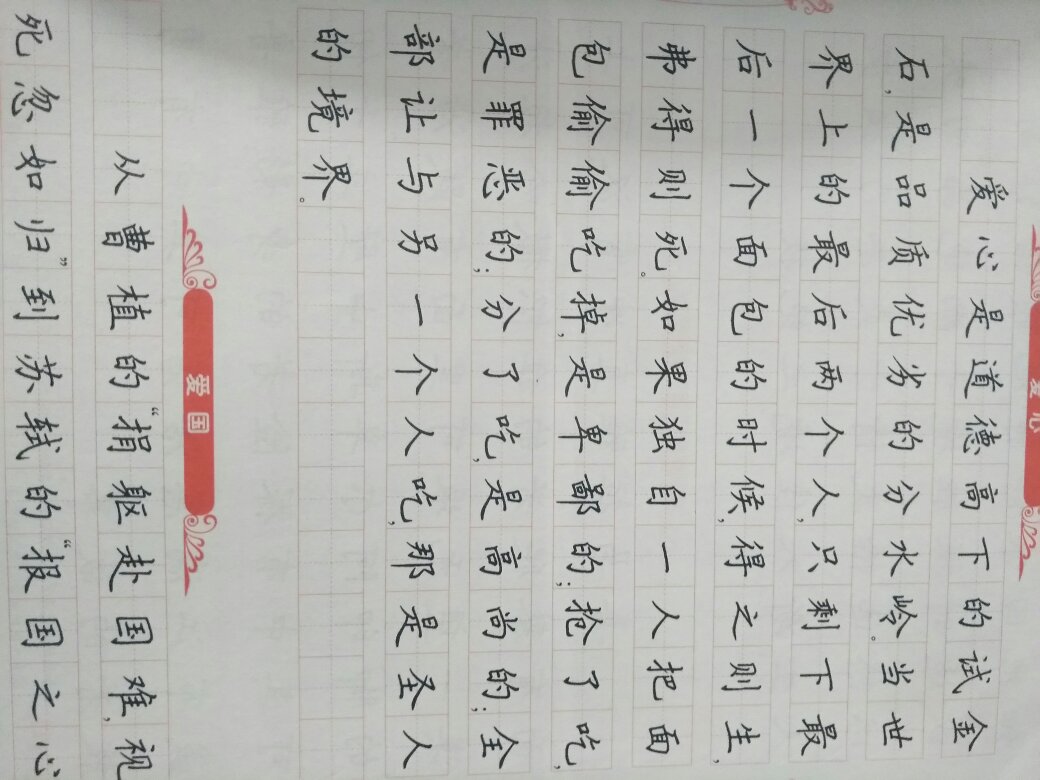 爱心
爱心是道德高下的试金
石,是品质优劣的分水岭。当世
界上的最后两个人,只剩下最
后一个面包的时候,得之则生,
弗得则死。如果独自一人把面
包偷偷吃掉,是卑鄙的;抢了吃,
是罪恶的;分了吃,是高尚的;全
部让与另一个人吃,那是圣人
的境界。
爱国
从曹植的“捐躯赴国难,视
死忽如归”到苏轼的“报国之心